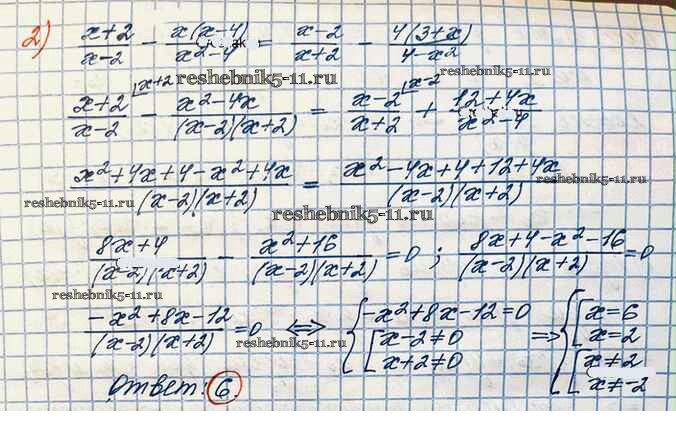 2) (x+2)/(x-2) - x(x-4)/(x²-4) = (x-2)/(x+2) - 4(3+x)/(4-x²)
reshebnik5-11.ru
(x+2)/(x-2) ⌊x+2 - (x²-4x)/((x-2)(x+2)) = (x-2)/(x+2) ⌊x-2 + (12+4x)/(x²-4)
(x²+4x+4-x²+4x)/((x-2)(x+2)) = (x²-4x+4+12+4x)/((x-2)(x+2))
reshebnik5-11.ru
reshebnik5-11.ru
reshebnik5-11.ru
(8x+4)/((x-2)(x+2)) - (x²+16)/((x-2)(x+2)) = 0 ; (8x+4-x²-16)/((x-2)(x+2)) = 0
reshebnik5-11.ru
(-x²+8x-12)/((x-2)(x+2)) = 0 ⇔ { -x²+8x-12=0 [ x-2≠0 x+2≠0 ⇒ { [ x=6 x=2 [ x≠2 x≠-2
reshebnik5-11.ru
Ответ: 6.